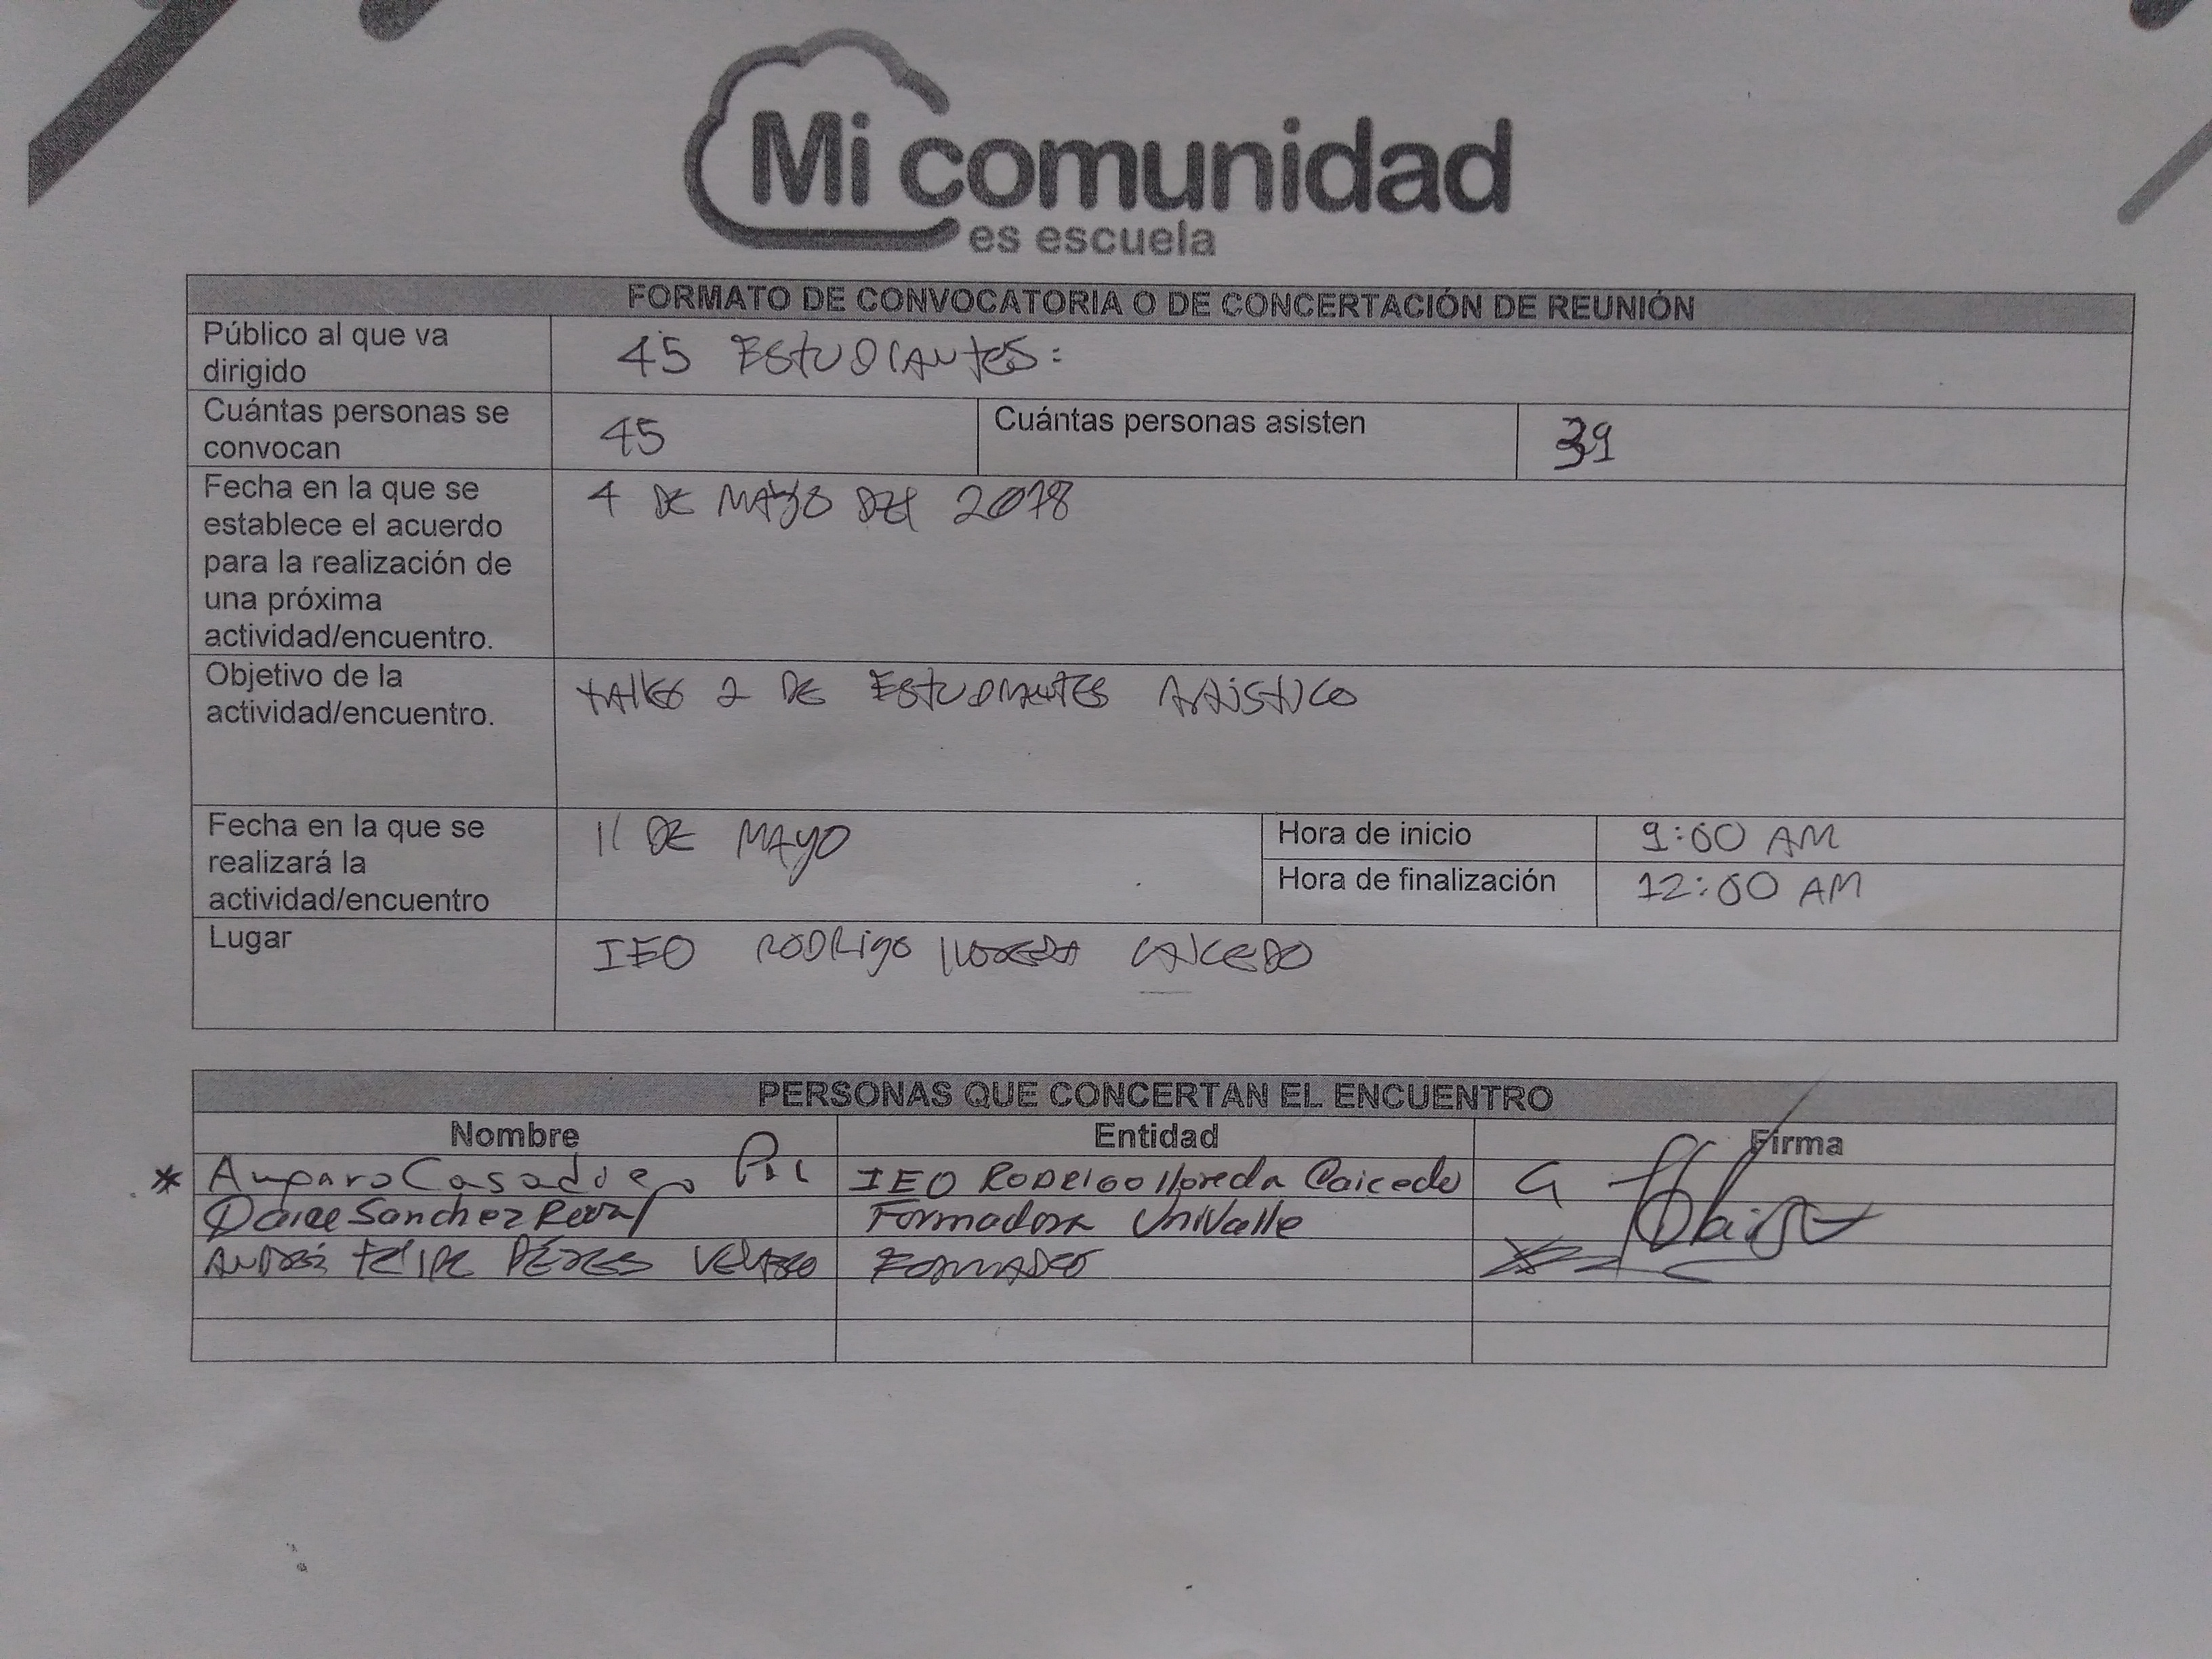 Mi comunidad
es escuela
FORMATO DE CONVOCATORIA O DE CONCERTACIÓN DE REUNIÓN
Público al que va
dirigido
45 ESTUDIANTES:
Cuántas personas se
convocan
45
Cuántas personas asisten
39
Fecha en la que se
establece el acuerdo
para la realización de
una próxima
actividad/encuentro.
4 DE MAYO DEL 2018
Objetivo de la
actividad/encuentro.
TALLER 2 DE ESTUDIANTES ARTISTICO
Fecha en la que se
realizará la
actividad/encuentro
11 DE MAYO
Hora de inicio
9:00 AM
Hora de finalización
12:00 AM
Lugar
IEO RODRIGO LLOREDA CAICEDO
PERSONAS QUE CONCERTAN EL ENCUENTRO
Nombre Entidad Firma
* Amparo IEO RODRIGO lloreda Caicedo
Sanchez Formadora UniValle
ANDRÉS FELIPE PÉREZ VELASCO FORMADOR